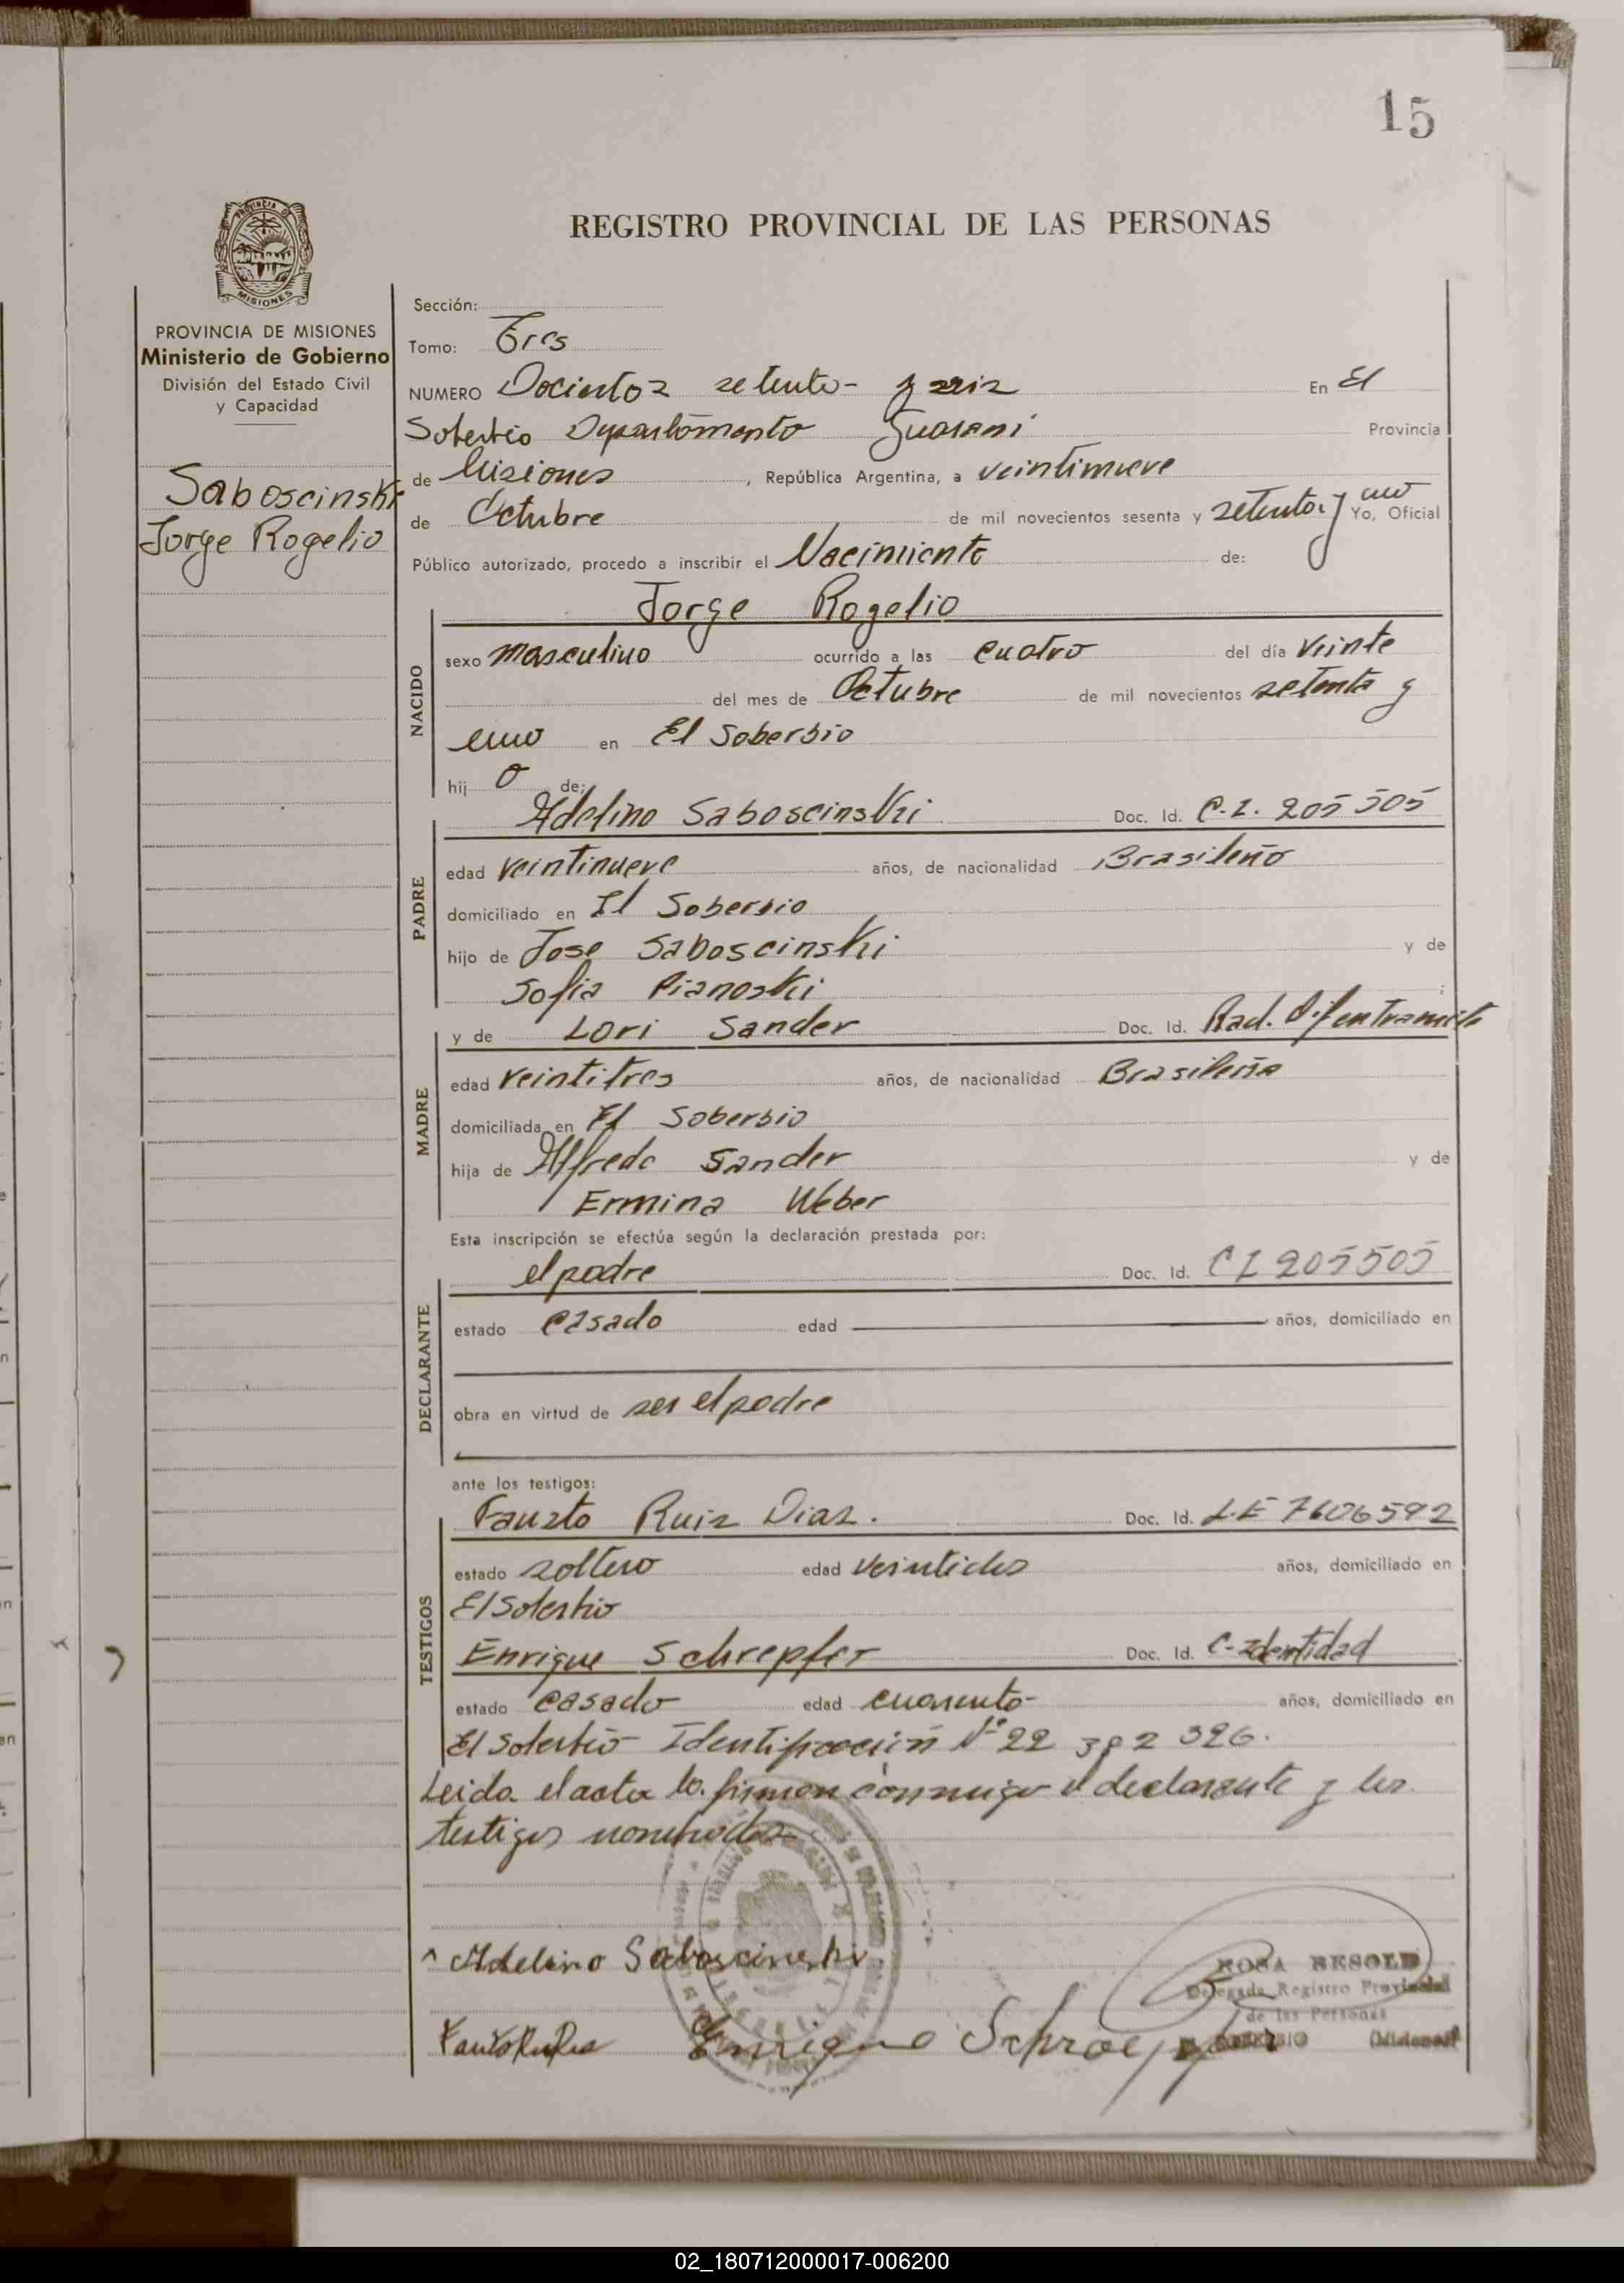 15
REGISTRO PROVINCIAL DE LAS PERSONAS
PROVINCIA DE MISIONES
Ministerio de Gobierno
División del Estado Civil
y Capacidad
Saboscinski
Jorge Rogelio
Sección:
Tomo: Tres
NUMERO Docientos setenta y seis En El
Soberbio Departamento Guarani Provincia
de Misiones, República Argentina, a veintinueve
de Octubre de mil novecientos sesenta y setenta y uno Yo, Oficial
Público autorizado, procedo a inscribir el Nacimiento de:
Jorge Rogelio
NACIDO
sexo masculino ocurrido a las cuatro del día veinte
del mes de Octubre de mil novecientos setenta y
uno en El Soberbio
hij o de:
Adelino Saboscinski Doc. Id. C.I. 205505
PADRE
edad veintinueve años, de nacionalidad Brasileño
domiciliado en El Soberbio
hijo de Jose Saboscinski y de
Sofia Pianoski
y de Lori Sander Doc. Id. Rad. Dif en tramite
MADRE
edad veintitres años, de nacionalidad Brasileña
domiciliada en El Soberbio
hija de Alfredo Sander y de
Ermina Weber
Esta inscripción se efectúa según la declaración prestada por:
el padre Doc. Id. CI 205505
DECLARANTE
estado casado edad años, domiciliado en
obra en virtud de ser el padre
ante los testigos:
Fausto Ruiz Diaz. Doc. Id. L.E 7606592
TESTIGOS
estado soltero edad veintidos años, domiciliado en
El Soberbio
Enrique Schrepfer Doc. Id. C-Identidad
estado casado edad cuarenta años, domiciliado en
El Soberbio Identificación Nº 22 382 326.
Leida el acta la firman conmigo el declarante y los
testigos nombrados
Adelino Saboscinski
Enrique Schroepfer
ROSA RESOLD
Delegada Registro Provincial
de las Personas
(Misiones)
02_180712000017-006200